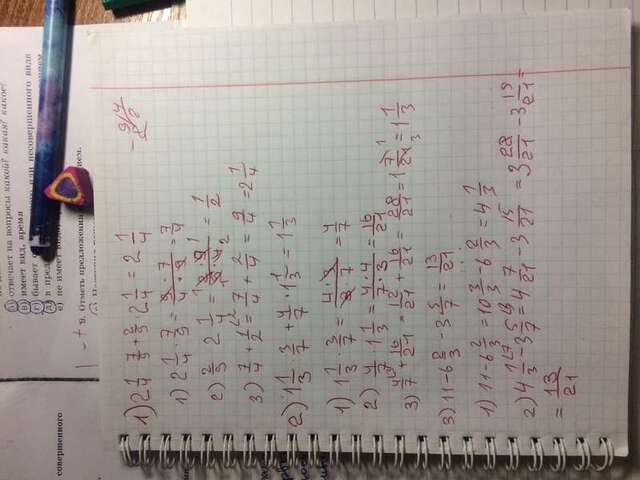 б) отвечает на вопросы какой? какая? какое?
в) имеет вид, время
г) бывает или несовершенного вида
совершенного
д) в пред
е) не имеет
9. Отметь предложения
1) 2 1/4 · 7/9 + 2/9 · 2 1/4 = 2 1/4
1) 2 1/4 · 7/9 = 9 · 7 / 4 · 9 = 7/4
2) 2/9 · 2 1/4 = 2 · 9 / 9 · 4 = 1/2
3) 7/4 + 1/2 = 7/4 + 2/4 = 9/4 = 2 1/4
2) 1 1/3 · 3/7 + 4/7 · 1 1/3 = 1 1/3
1) 1 1/3 · 3/7 = 4 · 3 / 3 · 7 = 4/7
2) 4/7 · 1 1/3 = 4 · 4 / 7 · 3 = 16/21
3) 4/7 + 16/21 = 12/21 + 16/21 = 28/21 = 1 7/21 = 1 1/3
3) 11 - 6 2/3 - 3 5/7 = 13/21
1) 11 - 6 2/3 = 10 3/3 - 6 2/3 = 4 1/3
2) 4 1/3 - 3 5/7 = 4 7/21 - 3 15/21 = 3 28/21 - 3 15/21 =
= 13/21